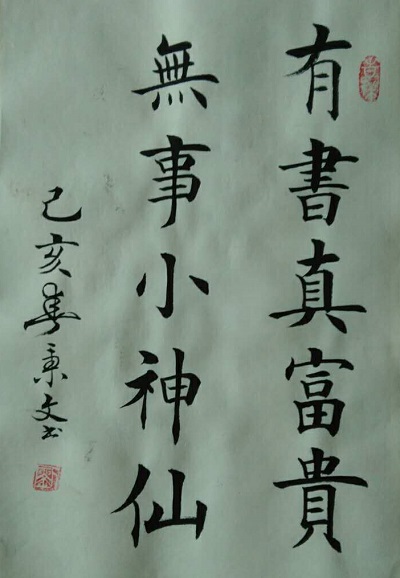 有書真富貴
無事小神仙
己亥春秉文书